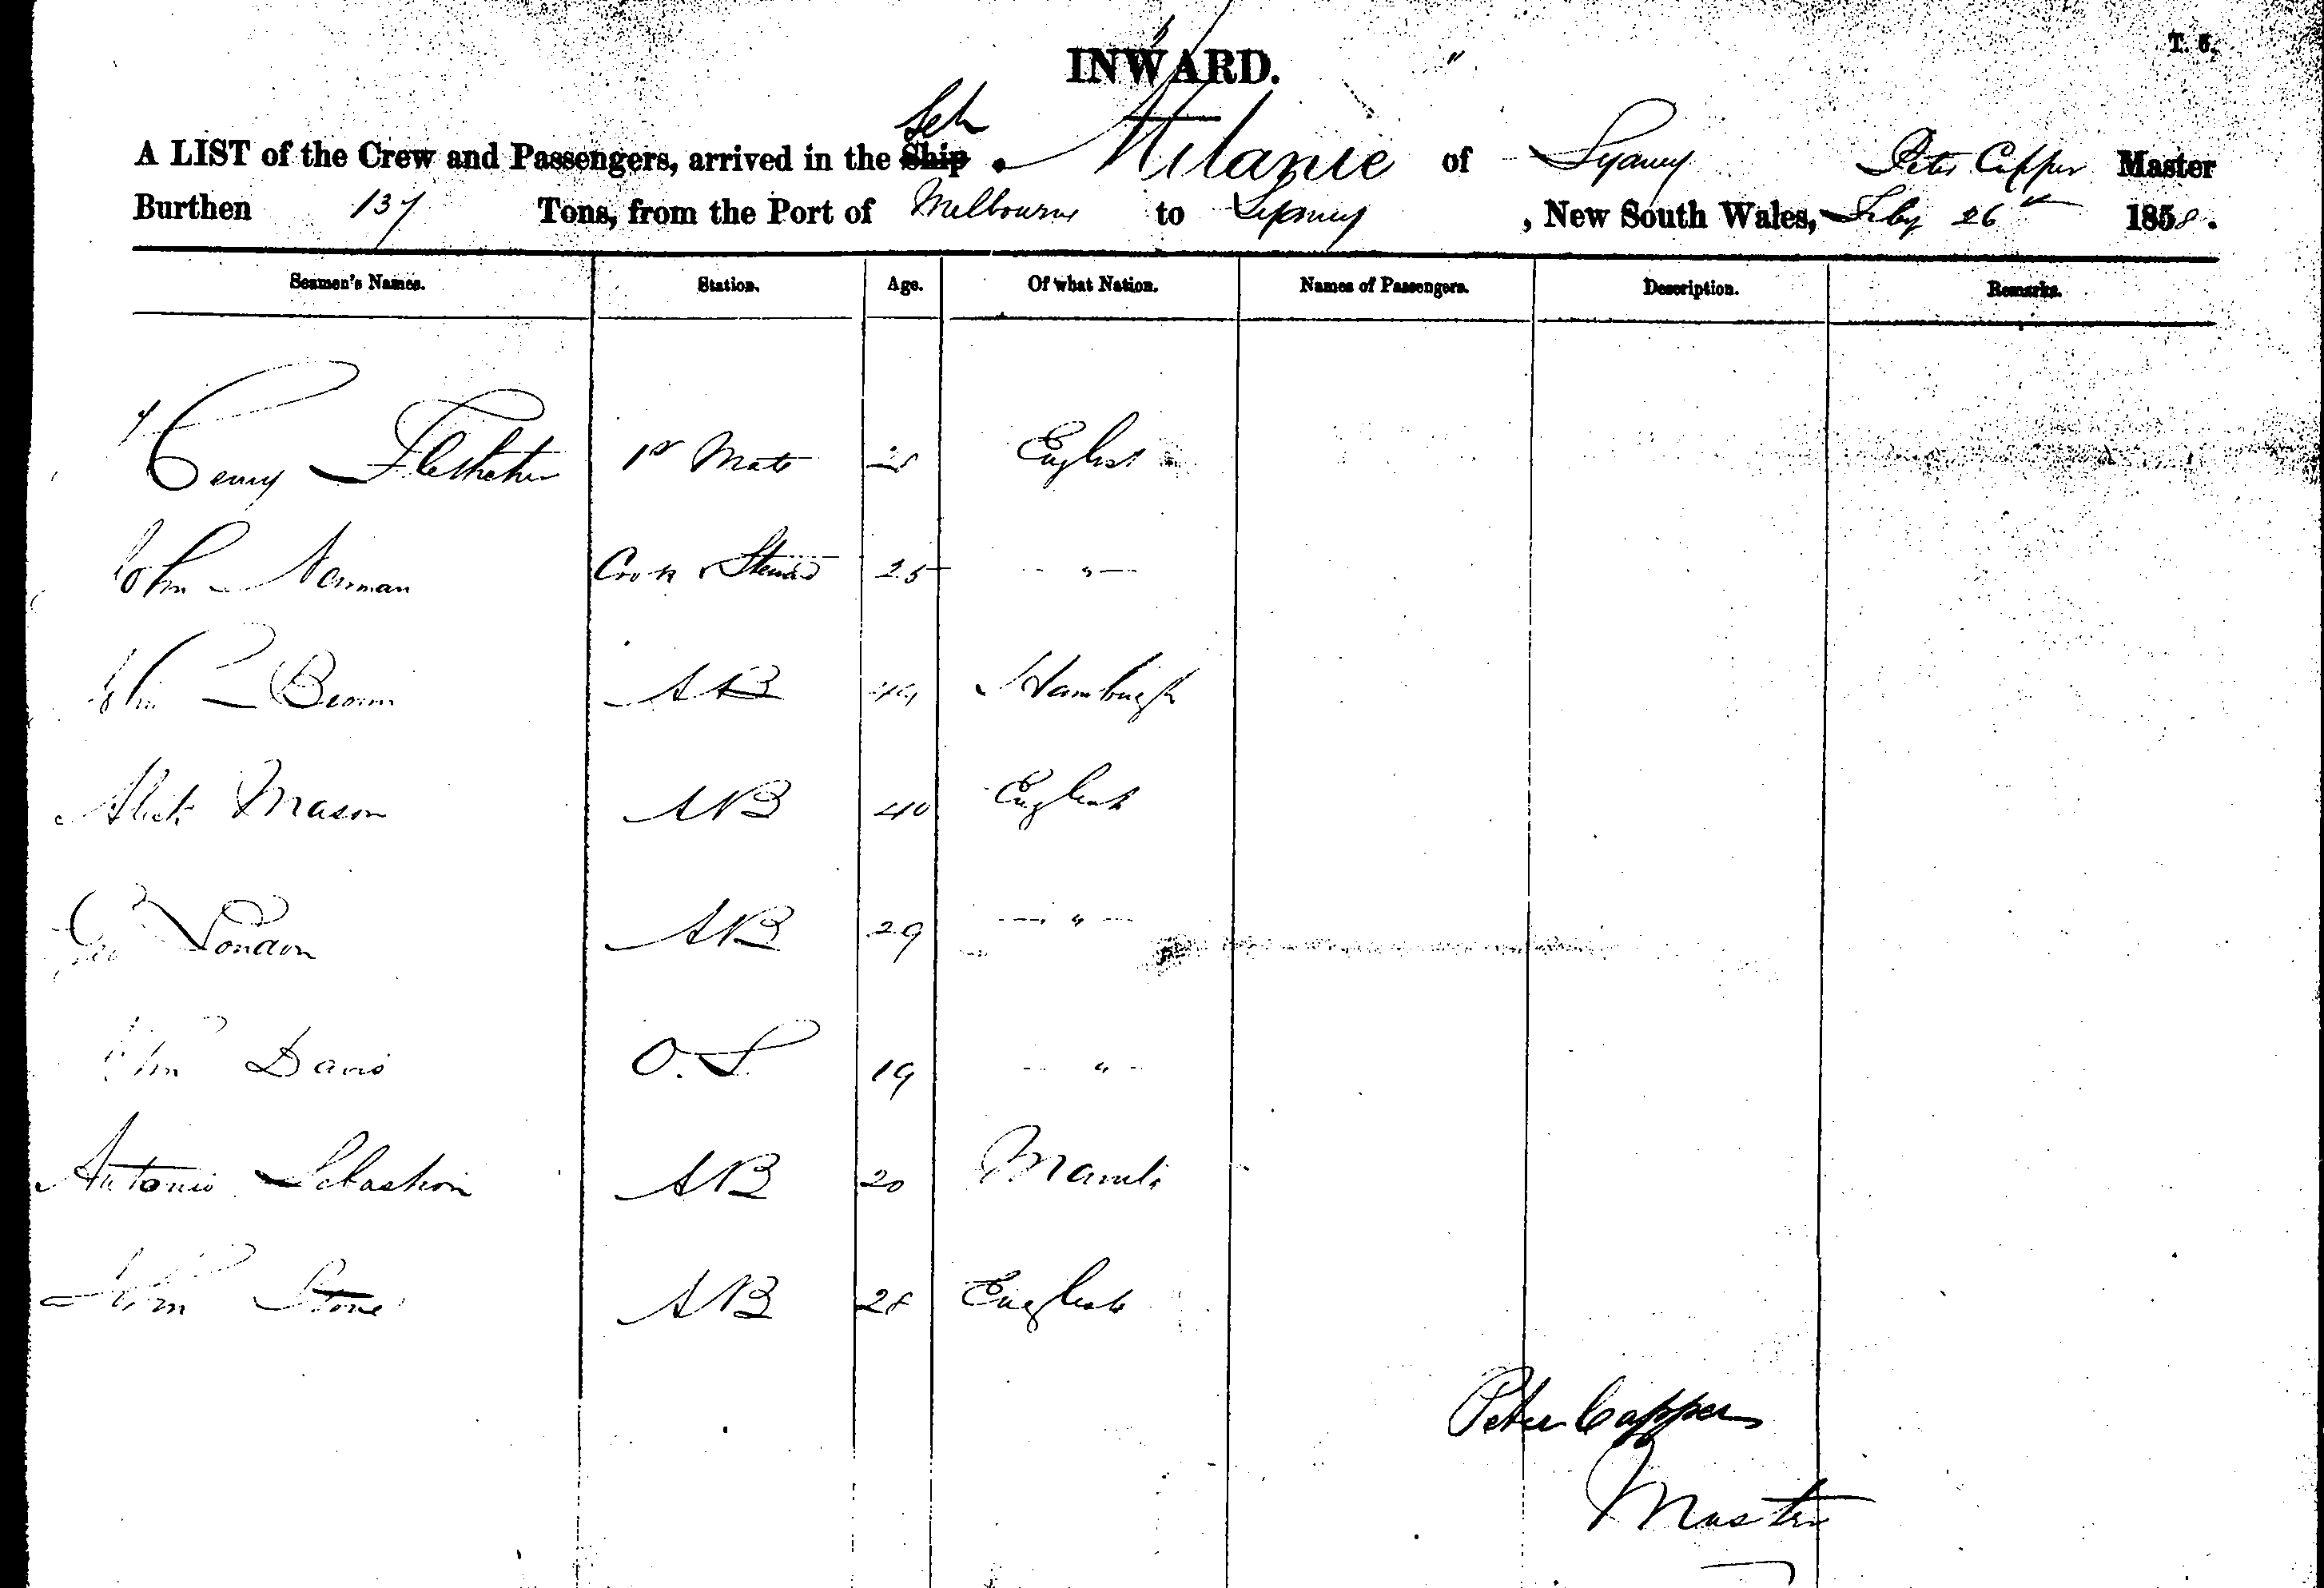 T. 6.
INWARD.
Sch
A LIST of the Crew and Passengers, arrived in the Ship Milanie of Sydney Peter Capper Master
Burthen 137 Tons, from the Port of Melbourne to Sydney, New South Wales, Feby 26th 1858.
Seamen's Names. Station. Age. Of what Nation. Names of Passengers. Description. Remarks.
Henry 1st Mate 28 English
John Norman Cook & Steward 25 "
John Brown AB 44 Hamburgh
Alick Mason AB 40 English
Geo London AB 29 "
John Davis O.S. 19 "
Antonio Sebastion AB 20 Manila
John Stone AB 28 English
Peter Capper
Master